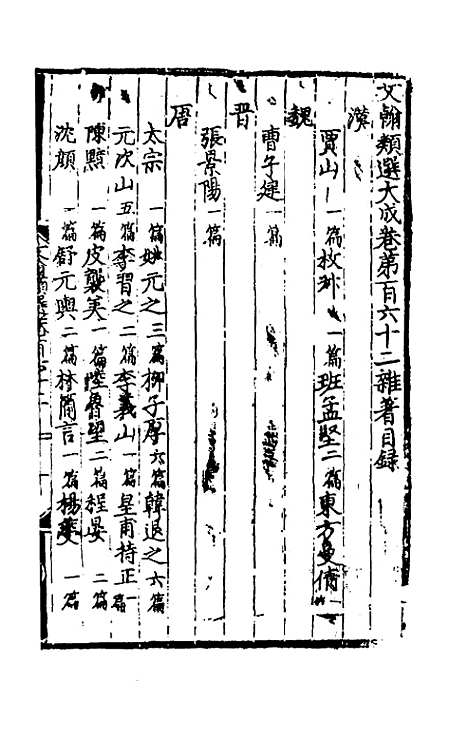 文翰類選大成卷第百六十二雜著目錄
漢
賈山一篇枚乘一篇班孟堅二篇東方曼倩一
魏
曹子建一篇
晉
張景陽一篇
唐
太宗一篇姚元之三篇柳子厚六篇韓退之六篇
元次山五篇李習之二篇李義山一篇皇甫持正一篇
陳黯一篇皮襲美一篇陸魯望二篇程晏二篇
沈顏一篇舒元輿二篇林簡言一篇楊夔一篇